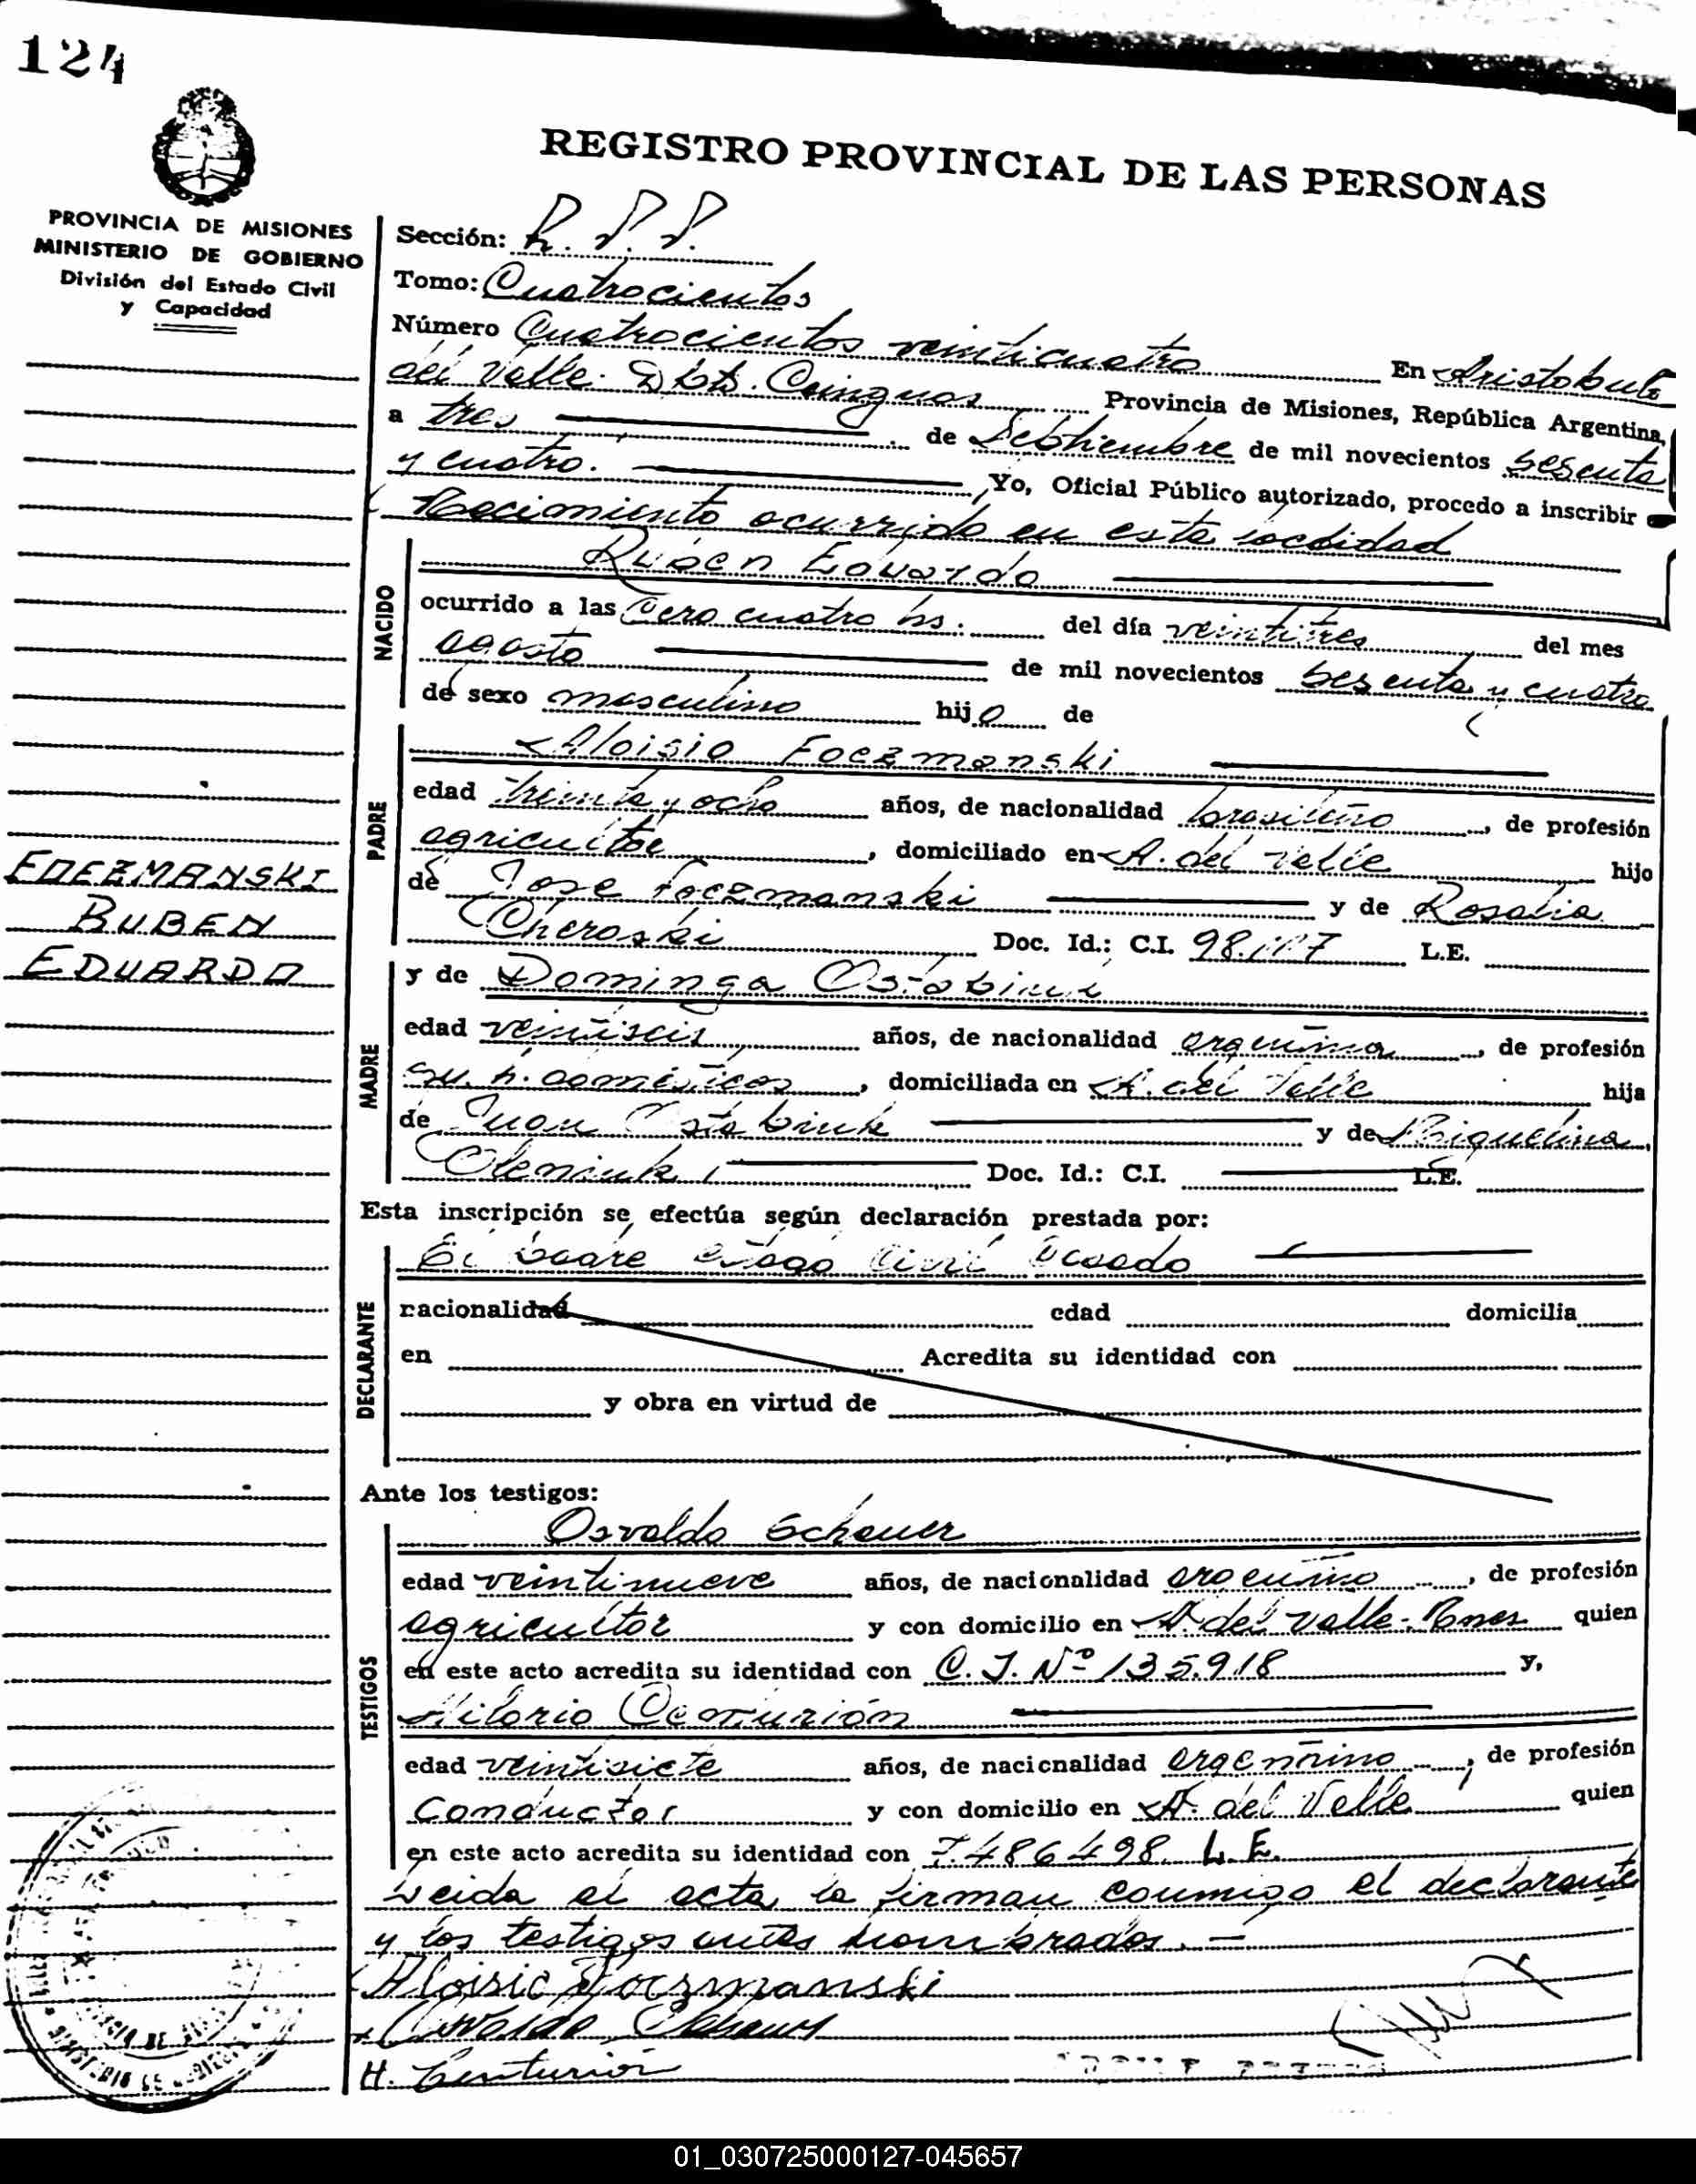 124
REGISTRO PROVINCIAL DE LAS PERSONAS
PROVINCIA DE MISIONES
MINISTERIO DE GOBIERNO
División del Estado Civil
y Capacidad
Sección: R. P. P.
Tomo: Cuatrocientos
Número Cuatrocientos veinticuatro En Aristobulo
del Valle. Dpto. Cainguas Provincia de Misiones, República Argentina,
a tres de Septiembre de mil novecientos sesenta
y cuatro. Yo, Oficial Público autorizado, procedo a inscribir
Nacimiento ocurrido en esta localidad
NACIDO
Ruben Eduardo
ocurrido a las Cero cuatro hs. del día veintitres del mes
agosto de mil novecientos sesenta y cuatro
de sexo masculino hijo de
PADRE
Aloisio Foczmanski
edad treinta y ocho años, de nacionalidad brasileño, de profesión
agricultor, domiciliado en A. del Valle hijo
de Jose Foczmanski y de Rosalia
Cheroski Doc. Id.: C.I. 98.117 L.E.
FOCZMANSKI
RUBEN
EDUARDO
MADRE
y de Dominga Ostabink
edad veintiseis años, de nacionalidad argentina, de profesión
qu. h. domésticos, domiciliada en A. del Valle hija
de Juan Ostabink y de Miquelina
Oleniuk Doc. Id.: C.I. L.E.
Esta inscripción se efectúa según declaración prestada por:
DECLARANTE
El padre Estado Civil Casado
nacionalidad edad domicilia
en Acredita su identidad con
y obra en virtud de
Ante los testigos:
TESTIGOS
Osvaldo Schauer
edad veintinueve años, de nacionalidad argentino, de profesión
agricultor y con domicilio en A. del Valle - Mnes quien
en este acto acredita su identidad con C. I. Nº 135.918 y,
Hilario Centurión
edad veintisiete años, de nacionalidad argentino, de profesión
Conductor y con domicilio en A. del Valle quien
en este acto acredita su identidad con 7.486498. L.E.
Leida el acta la firman conmigo el declarante
y los testigos antes nombrados.-
Aloisio Foczmanski
Osvaldo Schauer
H. Centurión
01_030725000127-045657